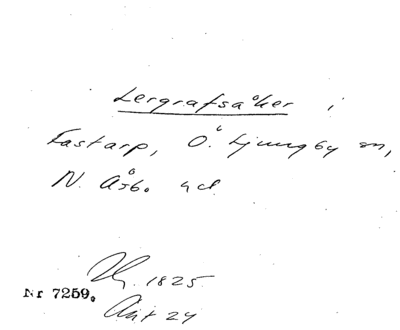 Lergrafsåker i
Fastarp, Ö. Ljungby sn,
N. Åsbo hd.
1825
Nr 7259.
Akt 24